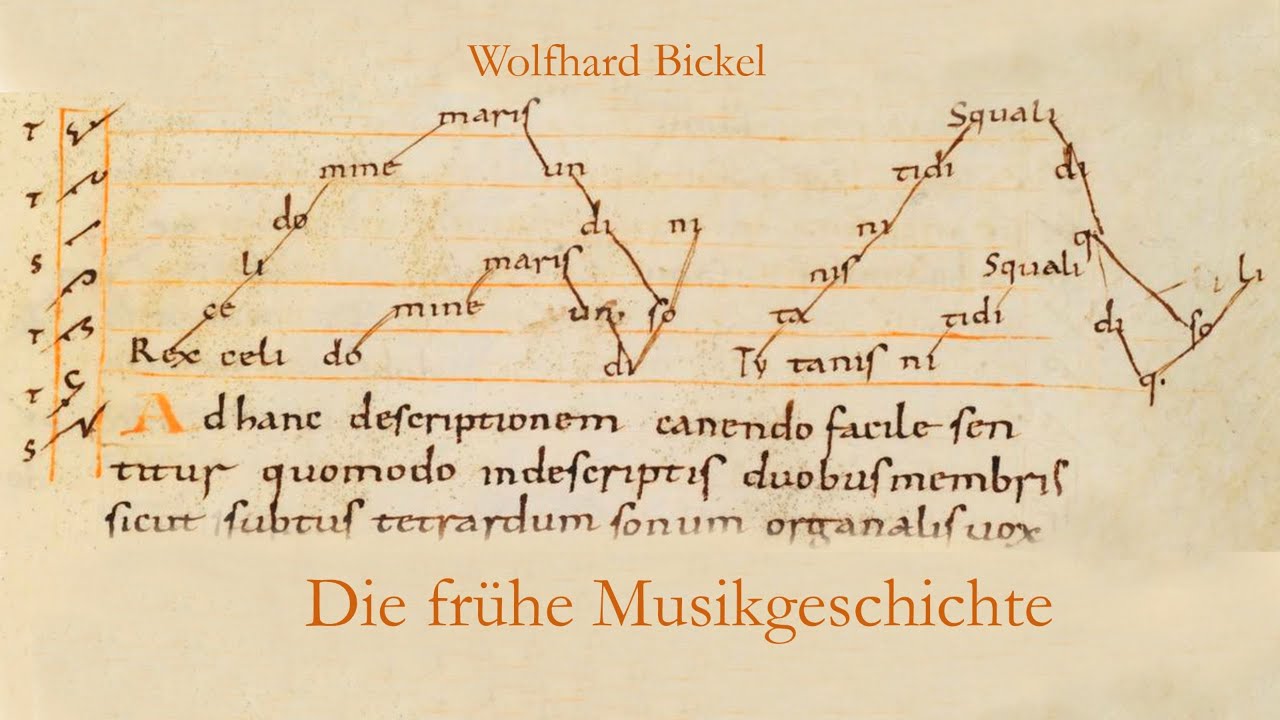 Wolfhard Bickel
maris Squali
mine un tidi di
do di ni ni q
li maris nis Squali li
ce mine un. so ta tidi di so
Rex celi do di Ty tanis ni q.
T
T
S
T
T
S
Ad hanc descriptionem canendo facile sen
titur quomodo indescriptis duobus membris
sicut subtus tetrardum sonum organalis vox
Die frühe Musikgeschichte